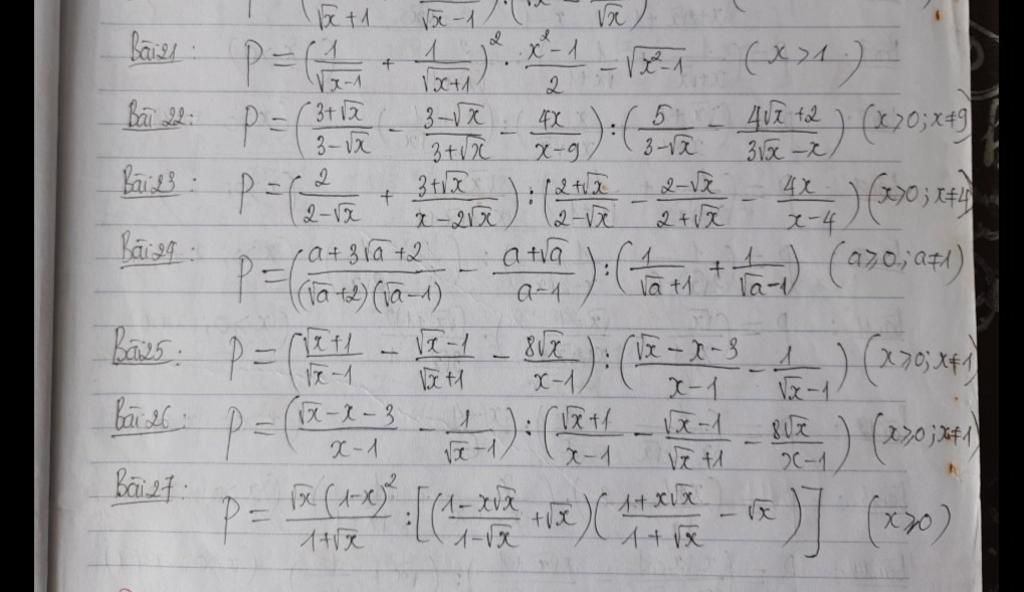 (  /(√x+1)   /(√x−1)) : (√x −  /√x)
Bài 21: P = (1/√(x−1) + 1/√(x+1))² · (x²−1)/2 − √(x²−1) (x>1)
Bài 22: P = ((3+√x)/(3−√x) − (3−√x)/(3+√x) − 4x/(x−9)) : (5/(3−√x) − (4√x+2)/(3√x−x)) (x>0; x≠9)
Bài 23: P = (2/(2−√x) + (3+√x)/(x−2√x)) : ((2+√x)/(2−√x) − (2−√x)/(2+√x) − 4x/(x−4)) (x>0; x≠4)
Bài 24: P = ((a+3√a+2)/((√a+2)(√a−1)) − (a+√a)/(a−1)) : (1/(√a+1) + 1/(√a−1)) (a≥0; a≠1)
Bài 25: P = ((√x+1)/(√x−1) − (√x−1)/(√x+1) − 8√x/(x−1)) : ((√x−x−3)/(x−1) − 1/(√x−1)) (x≥0; x≠1)
Bài 26: P = ((√x−x−3)/(x−1) − 1/(√x−1)) : ((√x+1)/(x−1) − (√x−1)/(√x+1) − 8√x/(x−1)) (x≥0; x≠1)
Bài 27: P = √x(1−x)²/(1+√x) : [((1−x√x)/(1−√x) + √x)((1+x√x)/(1+√x) − √x)] (x≥0)